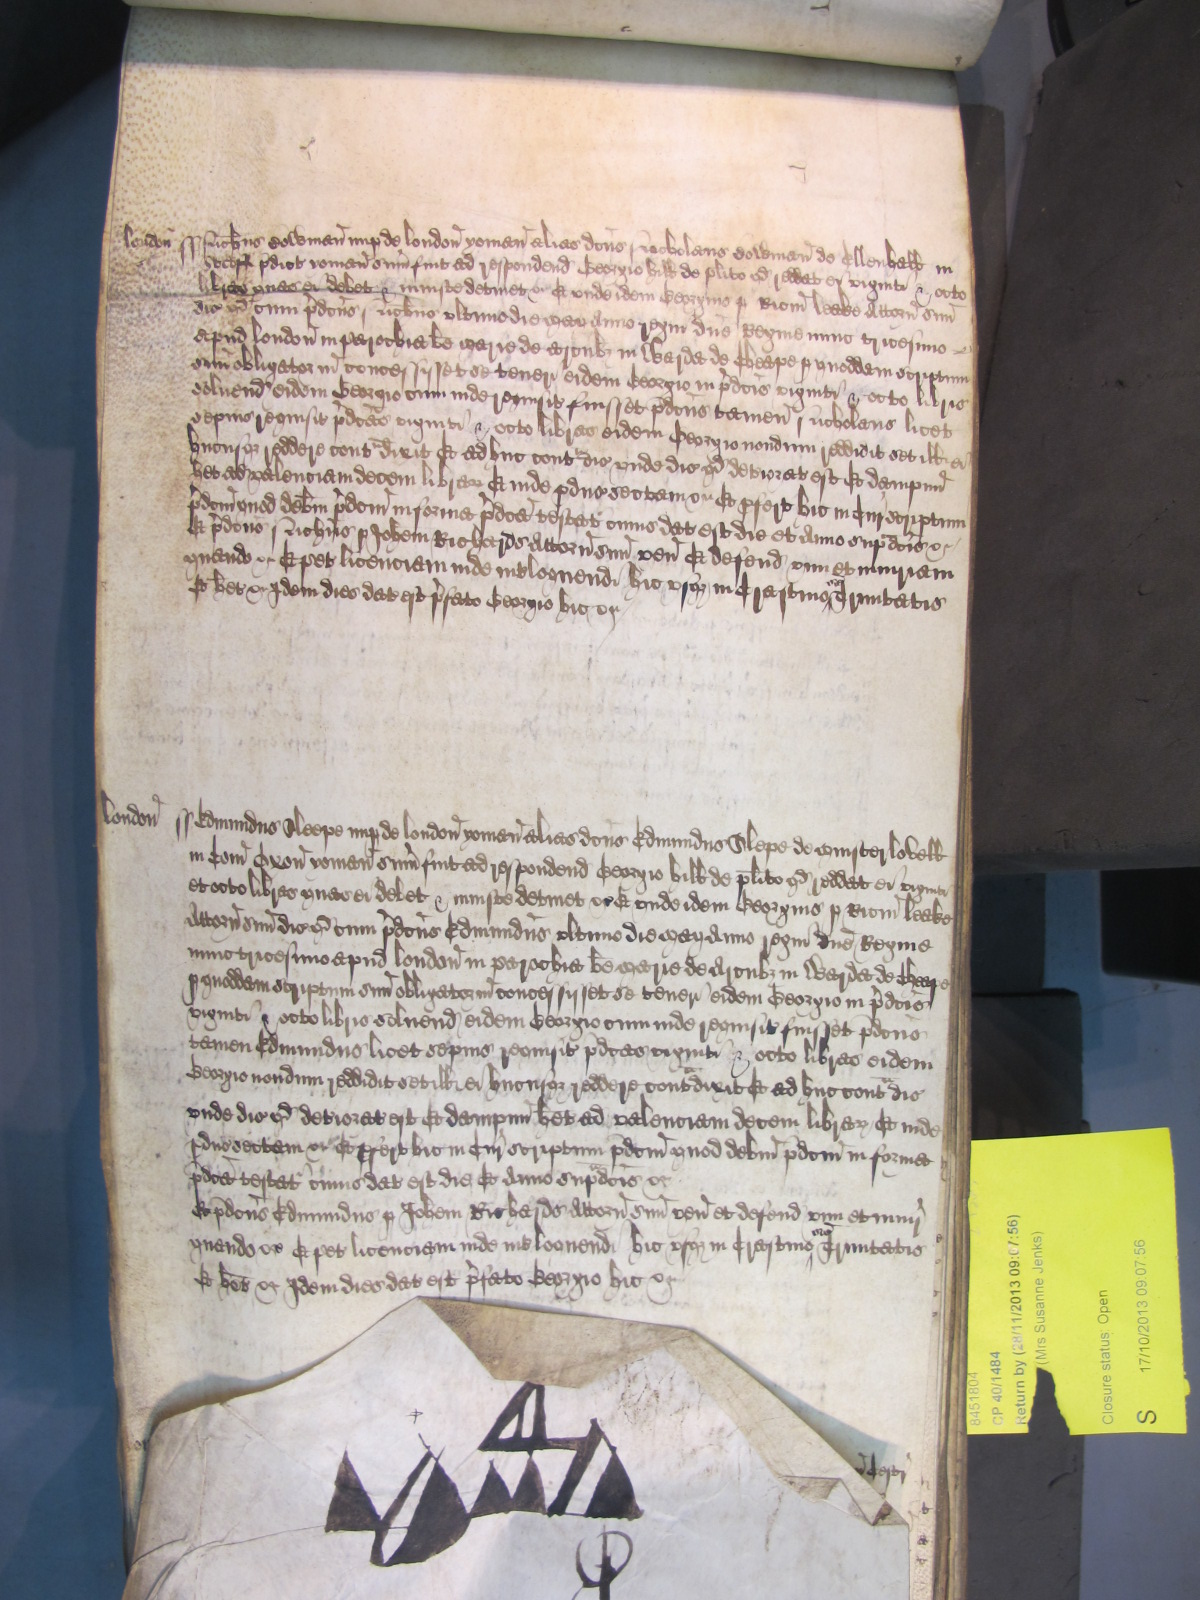 london ss Nichus Bowman nup de london yoman alias dcus Nicholaus Bowman de Ellenhall in
Com pdict yoman sum fuit ad respondend Georgio hill de plito qd reddat ei viginti & octo
libras quas ei debet & iniuste detinet &c Et unde idem Georgius p Ricm leake Attorn suu
dic qd cum pdcus Nichus ultimo die Maij Anno regni dne Regine nunc tricesimo
apud london in parochia be marie de arcubz in Warda de Cheape p quoddam scriptum
suu obligatoriu concessisset se teneri eidem Georgio in pdcis viginti & octo libris
solvend eidem Georgio cum inde requisit fuisset pdcus tamen Nicholaus licet
sepius requisit pdcas viginti & octo libras eidem Georgio nondum reddidit set ill ei
hucusqz reddere contdixit Et ad huc contdic unde dic qd deteriorat est Et dampnu
het ad valenciam decem librarz Et inde pduc sectam &c Et pfert hic in Cur scriptum
pdcm quod debm pdcm in forma pdca testat cuius dat est die et Anno supdcis &c
Et pdcus Nichus p Johem Richards Attorn suu ven Et defend vim et iniuriam
quando &c Et pet licenciam inde intloquendi hic usqz in Crastino sce Trinitatis
Et het &c Idem dies dat est pfato Georgio hic &c
london ss Edmundus Sleepe nup de london yoman alias dcus Edmundus Slepe de mynster lobell
in Com Oxon yoman sum fuit ad respondend Georgio hill de plito qd reddat ei viginti
et octo libras quas ei debet & iniuste detinet &c Et unde idem Georgius p Ricm leake
Attorn suu dic qd cum pdcus Edmundus ultimo die Maij Anno regni dne Regine
nunc tricesimo apud london in parochia be marie de Arcubz in Warda de Cheape
p quoddam scriptum suu obligatoriu concessisset se teneri eidem Georgio in pdcis
viginti & octo libris solvend eidem Georgio cum inde requisit fuisset pdcus
tamen Edmundus licet sepius requisit pdcas viginti & octo libras eidem
Georgio nondum reddidit set ill ei hucusqz reddere contdixit Et ad huc contdic
unde dic qd deteriorat est Et dampnu het ad valenciam decem librarz Et inde
pduc sectam &c Et pfert hic in Cur scriptum pdcm quod debm pdcm in forma
pdca testat cuius dat est die Et Anno supdcis &c
Et pdcus Edmundus p Johem Richards Attorn suu ven et defend vim et iniur
quando &c Et pet licenciam inde intloquendi hic usqz in Crastino sce Trinitatis
Et het &c Idem dies dat est pfato Georgio hic &c
8451804
CP 40/1484
Return by (28/11/2013 09:07:56)
(Mrs Susanne Jenks)
Closure status: Open
S 17/10/2013 09:07:56